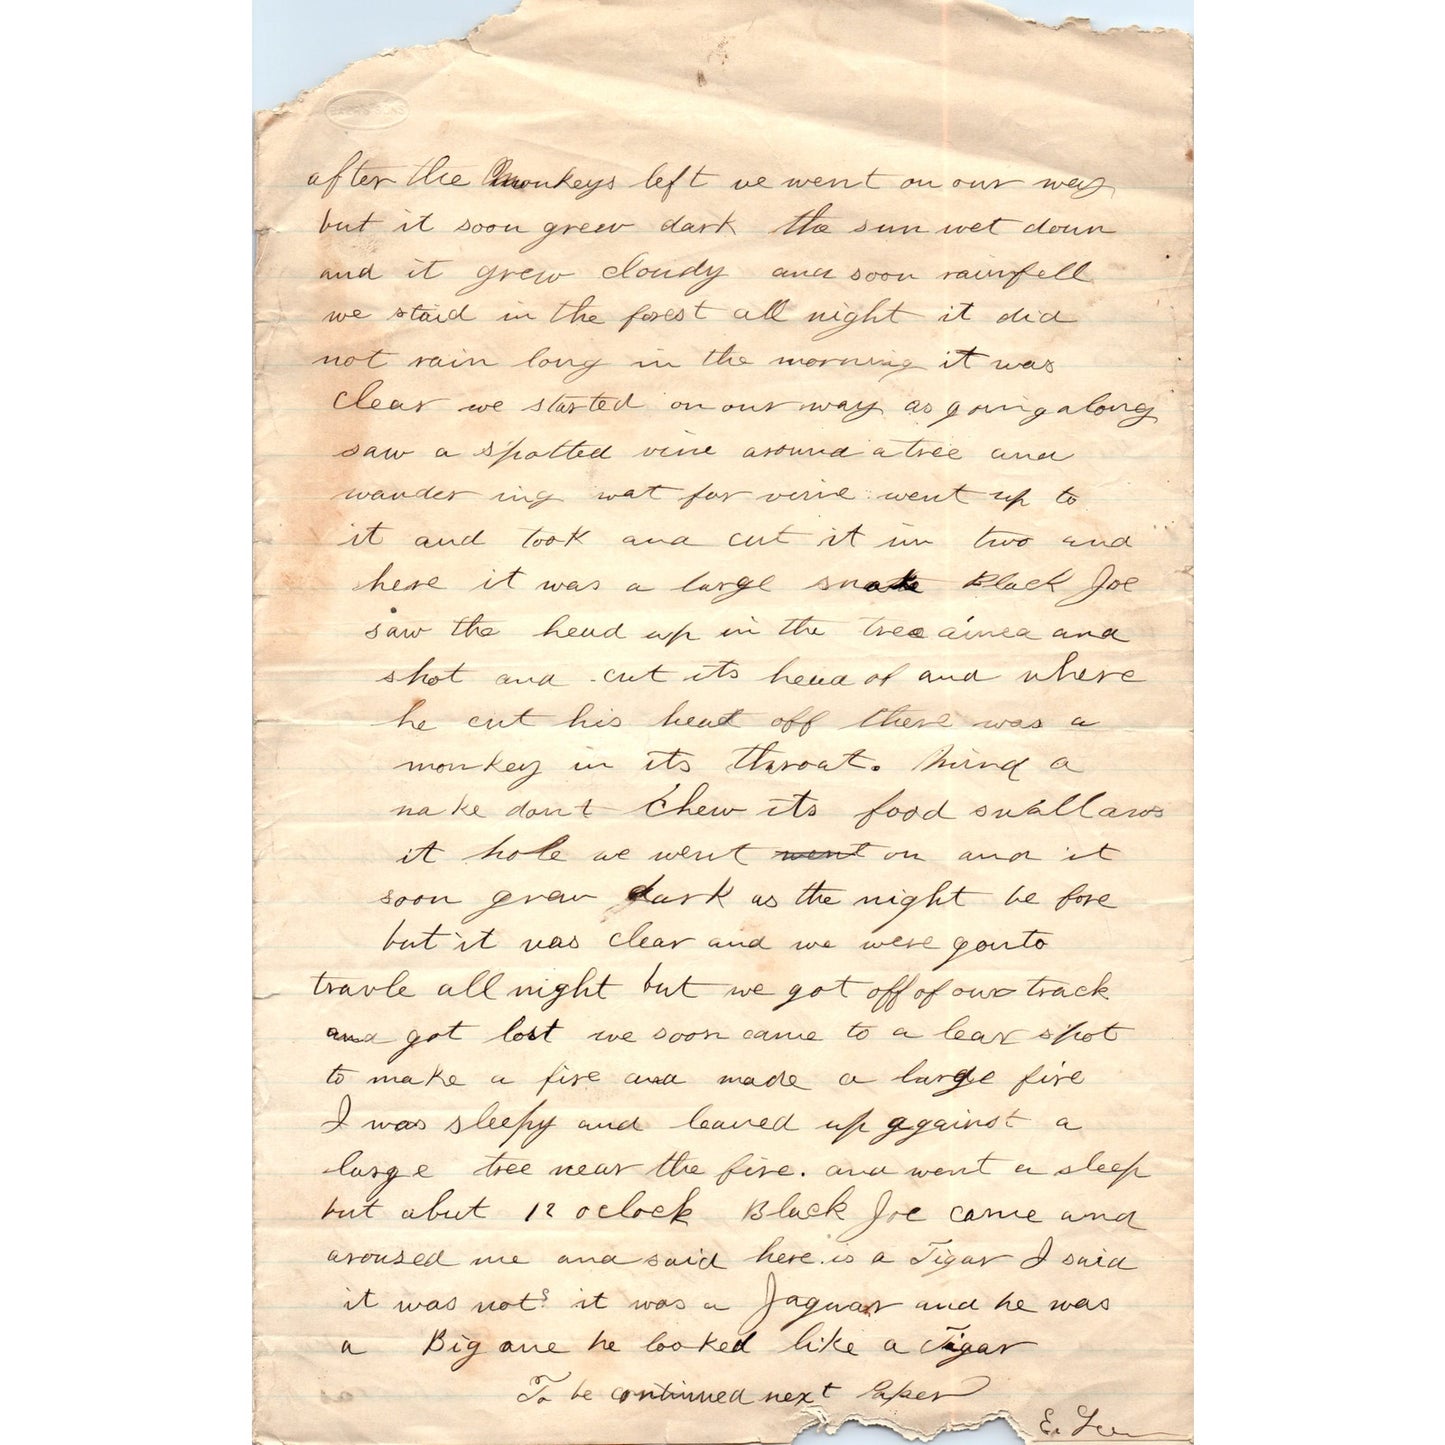 after the monkeys left we went on our way
but it soon grew dark the sun wet down
and it grew cloudy and soon rain fell
we staid in the forest all night it did
not rain long in the morning it was
clear we started on our way as going along
saw a spotted vine around a tree and
wander ing wat for vine went up to
it and took and cut it in two and
here it was a large snake Black Joe
saw the head up in the tree aimea and
shot and cut its head of and where
he cut his head off there was a
monkey in its throat. Mind a
nake dont chew its food swallaws
it hole we went went on and it
soon grew dark as the night be fore
but it was clear and we were gonto
travle all night but we got off of our track
and got lost we soon came to a lear spot
to make a fire and made a large fire
I was sleepy and leaned up against a
large tree near the fire. and went a sleep
but abut 12 oclock Black Joe came and
arouzed me and said here is a Tigar I said
it was not it was a Jaguar and he was
a Big one he looked like a Tigar
To be continued next Paper
E.